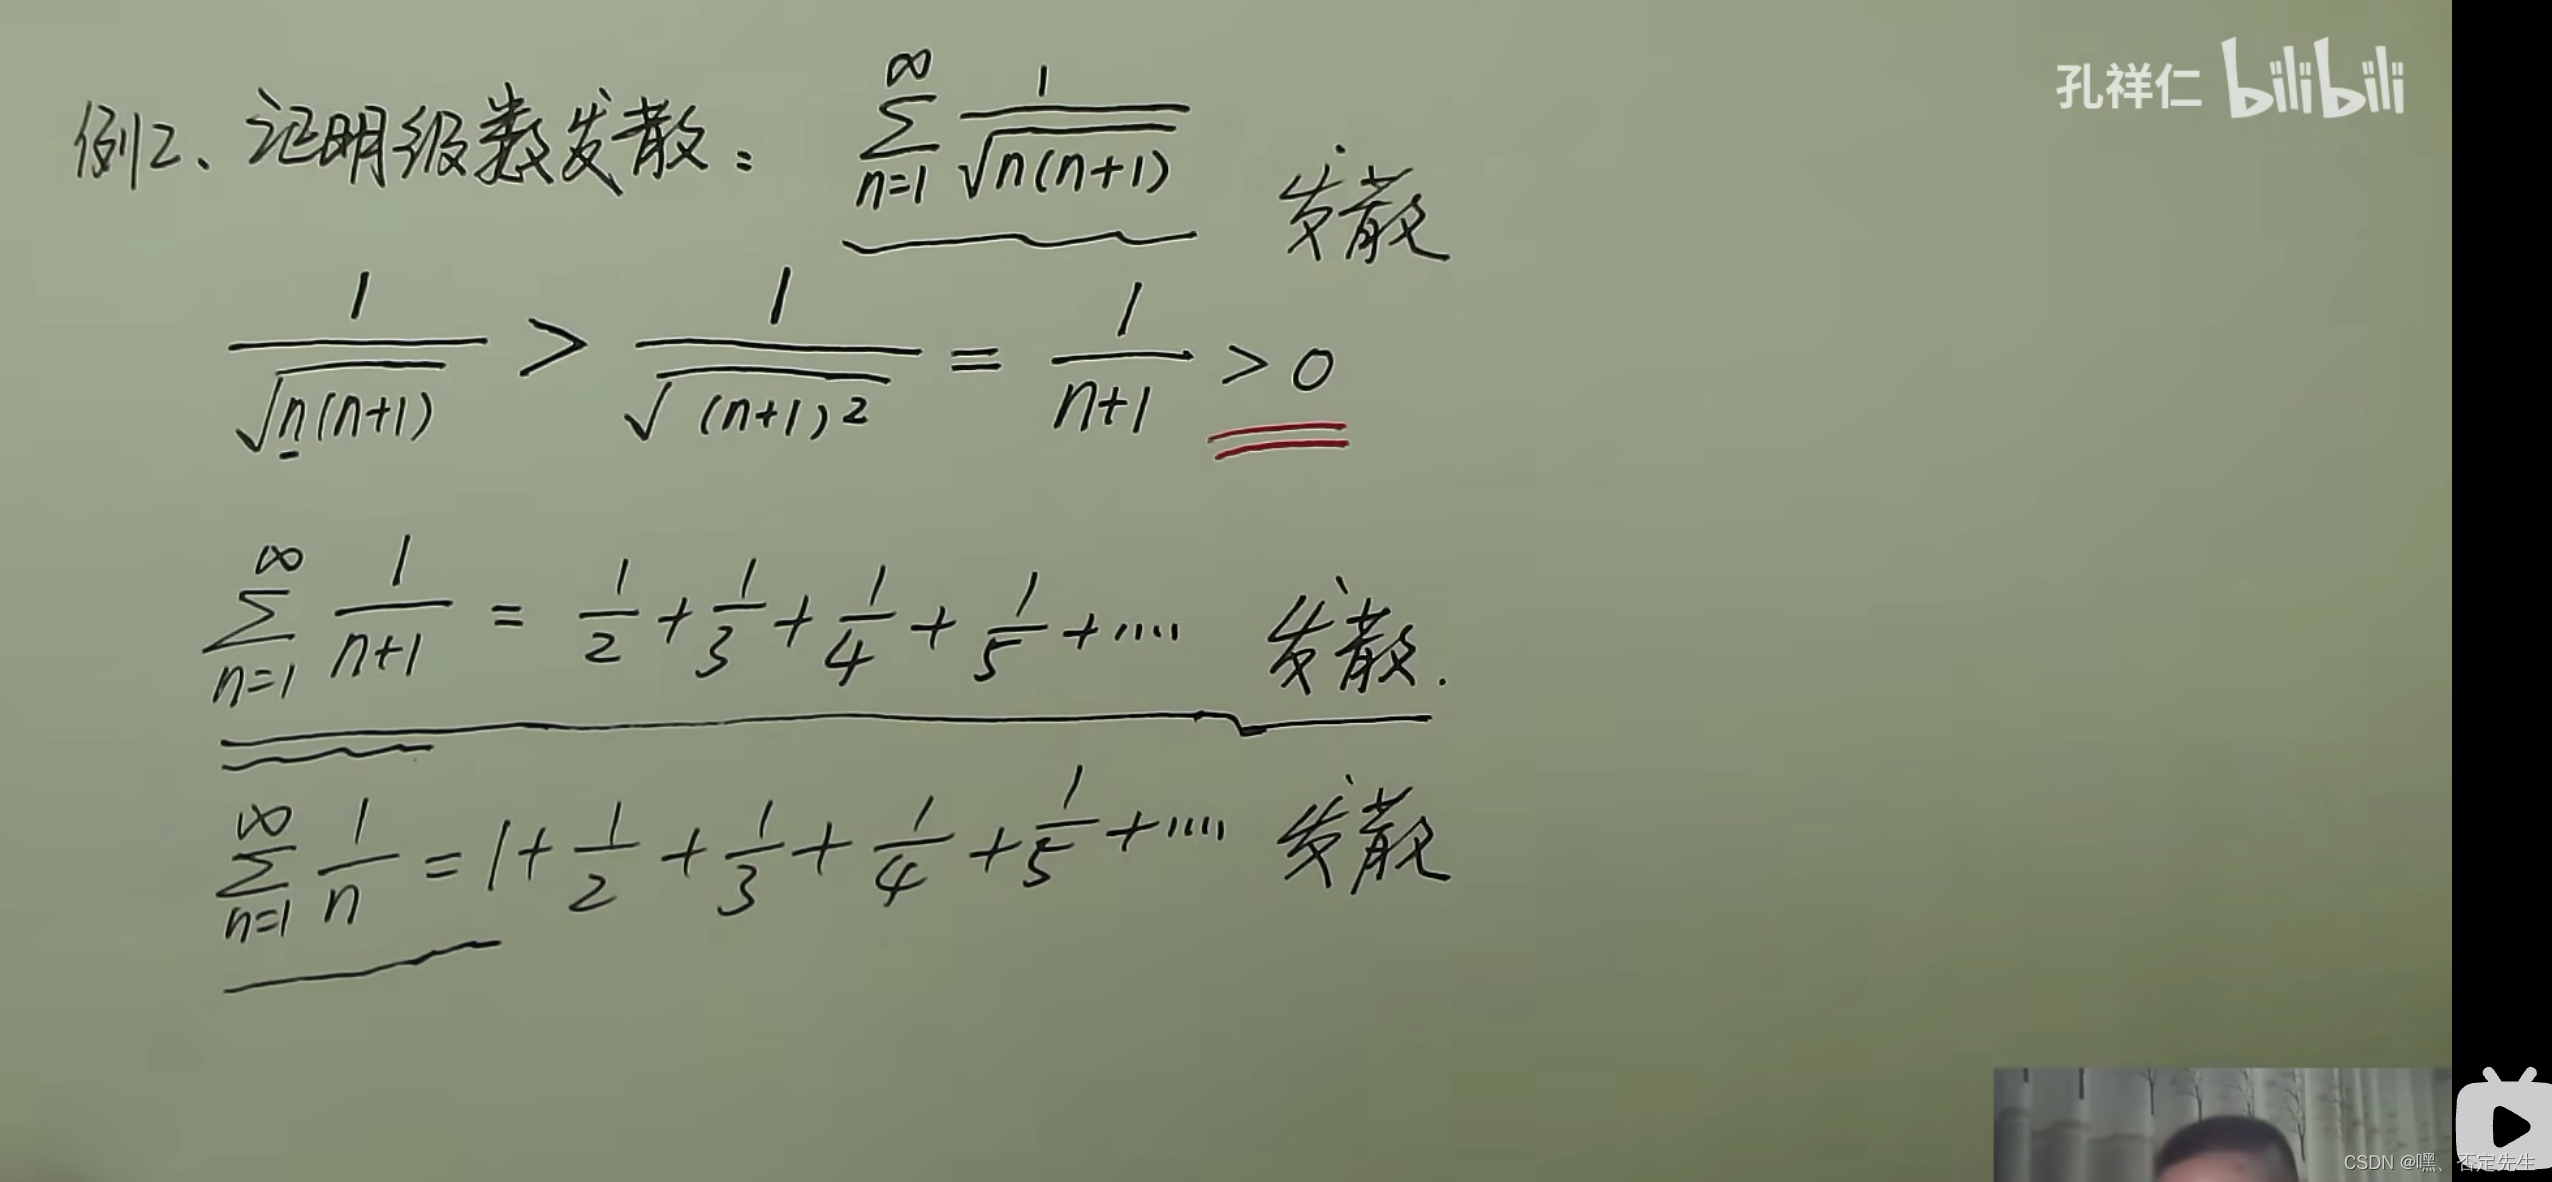 孔祥仁 bilibili
例2、证明级数发散： ∞ ∑ n=1 1/√(n(n+1)) 发散
1/√(n(n+1)) > 1/√((n+1)²) = 1/(n+1) > 0
∞ ∑ n=1 1/(n+1) = 1/2 + 1/3 + 1/4 + 1/5 + .... 发散.
∞ ∑ n=1 1/n = 1 + 1/2 + 1/3 + 1/4 + 1/5 + .... 发散
CSDN @嘿、否定先生